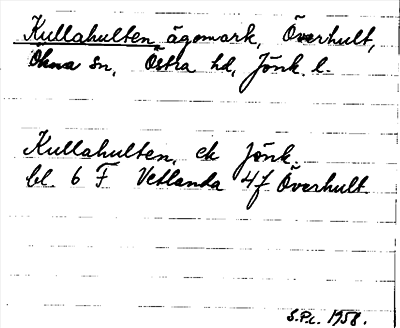 Kullahulten ägomark, Överhult,
Ökna sn, Östra hd, Jönk. l.
Kullahulten, ek Jönk.
bl. 6 F Vetlanda 4f Överhult
S.P.c. 1958.